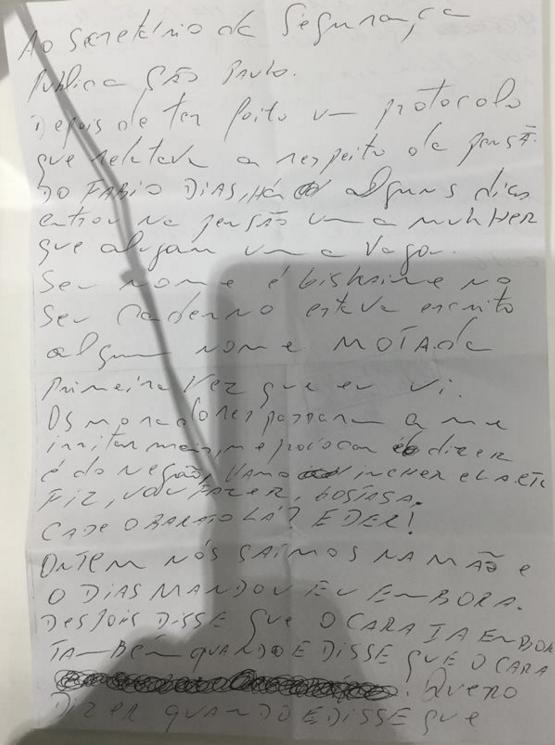 Ao Secretário da Segurança
Publica São Paulo.
Depois de ter feito um protocolo
que relatava a respeito da pensão
DO FABIO DIAS, HÁ alguns dias
entrou na pensão uma MULHER
que alugou uma vaga.
Seu nome é no
Seu Caderno estava escrito
algum nome MOTA da
Primeira Vez que eu vi.
Os moradores passaram a me
irritar mais, me provocar dizer
é do Negão, VAMO ENCHER ELA ETC
FIZ, VOU FAZER, GOSTASA.
CADE O BARATO LÁ? EDER!
ONTEM NÓS SAÍMOS NA MÃO e
O DIAS MANDOU EU EMBORA.
DESPOIS DISSE QUE O CARA IA EMBOR
TAMBÉM QUANDO E DISSE QUE O CARA
. Quero
DIZER QUANDO E DISSE que